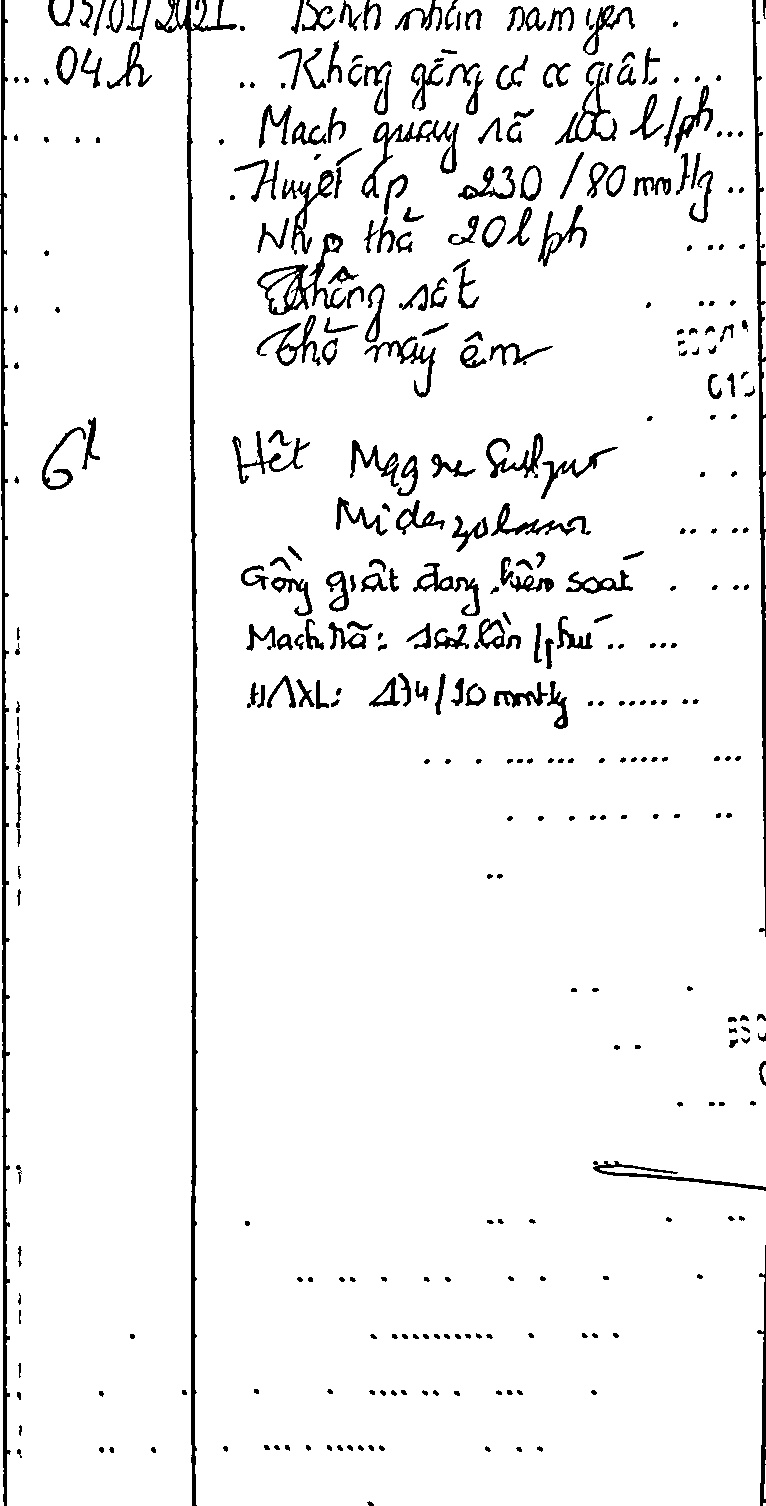 05/01/2021. Bệnh nhân nằm yên
04h Không gồng có cơ giật
Mạch quay rõ 100 l/ph
Huyết áp 230/80 mmHg
Nhịp thở 20 l/ph
Không sốt
Thở máy êm
6h Hết Magne Sulfat
Midazolam
Gồng giật đang kiểm soát
Mạch rõ: 102 lần/phút
HAXL: 174/90 mmHg